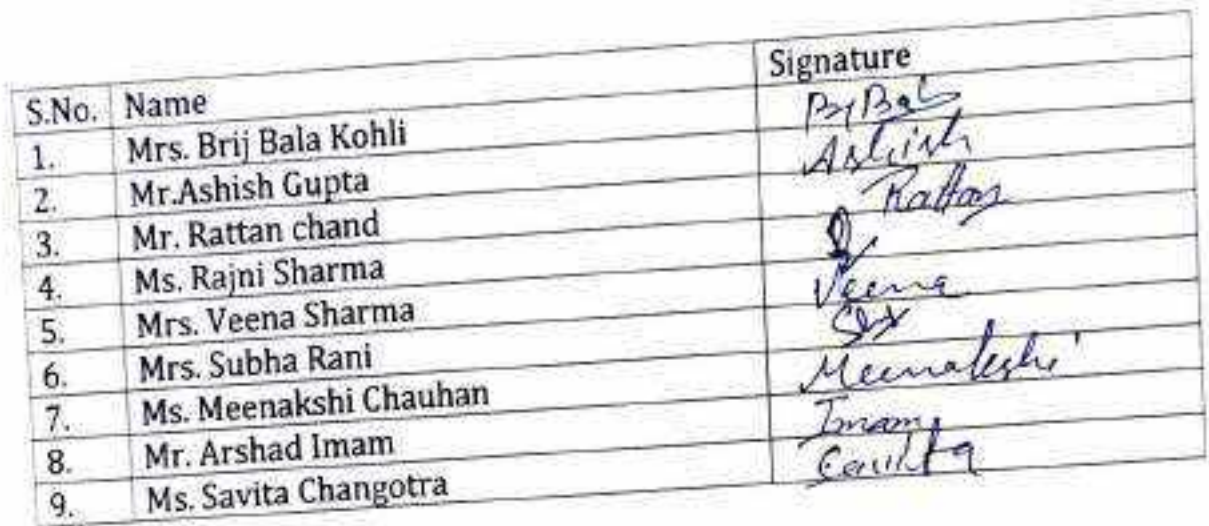 S.No. Name Signature
1. Mrs. Brij Bala Kohli
2. Mr.Ashish Gupta Ashish
3. Mr. Rattan chand Rattan
4. Ms. Rajni Sharma
5. Mrs. Veena Sharma Veena
6. Mrs. Subha Rani
7. Ms. Meenakshi Chauhan Meenakshi
8. Mr. Arshad Imam Imam
9. Ms. Savita Changotra